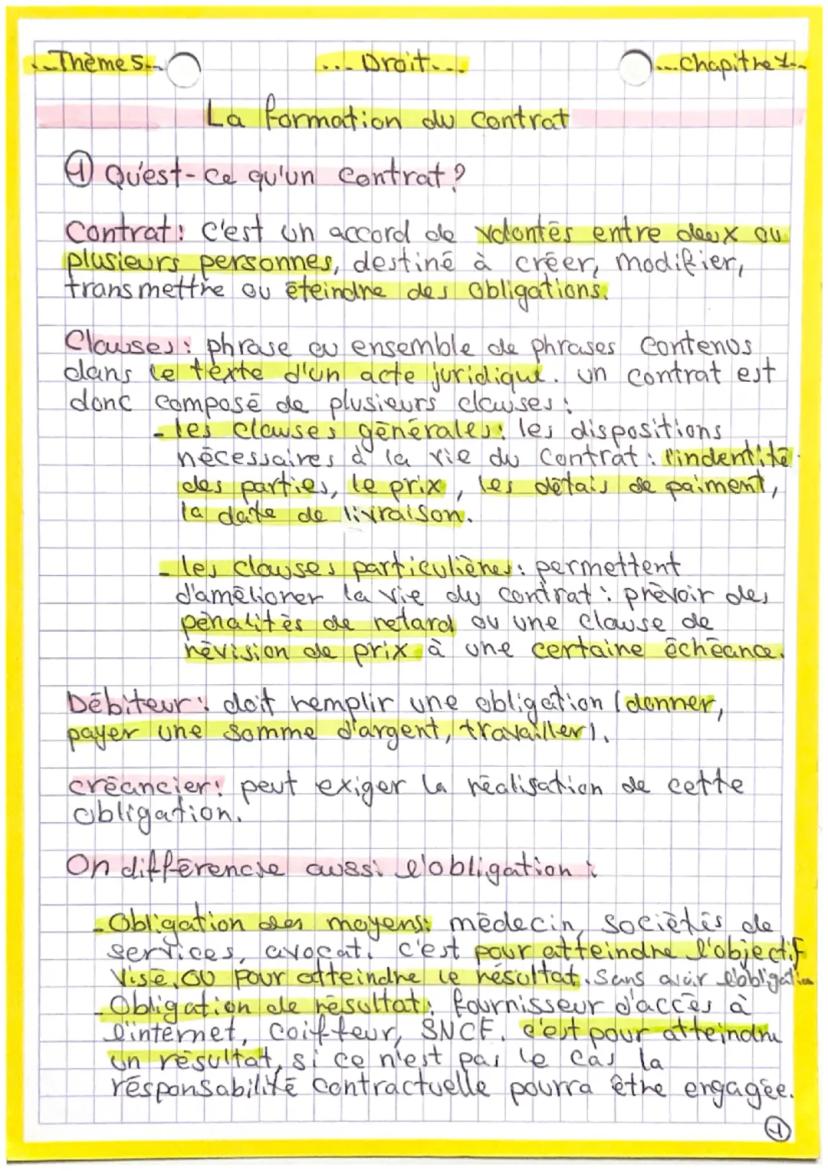 Thème 5 Droit Chapitre 1
La formation du contrat
① Qu'est-ce qu'un contrat ?
Contrat : c'est un accord de volontés entre deux ou
plusieurs personnes, destiné à créer, modifier,
transmettre ou éteindre des obligations.
Clauses : phrase ou ensemble de phrases contenus
dans le texte d'un acte juridique. un contrat est
donc composé de plusieurs clauses :
- les clauses générales : les dispositions
nécessaires à la vie du contrat : l'indentité
des parties, le prix, les détais de paiment,
la date de livraison.
- les clauses particulières : permettent
d'améliorer la vie du contrat : prévoir des
pénalités de retard ou une clause de
révision de prix à une certaine échéance.
Débiteur : doit remplir une obligation (donner,
payer une somme d'argent, travailler).
créancier : peut exiger la réalisation de cette
obligation.
On différencie aussi l'obligation :
- Obligation des moyens : médecin, sociétés de
services, avocat. c'est pour atteindre l'objectif
visé, ou pour atteindre le résultat, sans avoir l'obligation
- Obligation de résultat : fournisseur d'accès à
l'internet, coiffeur, SNCF. c'est pour atteindre
un résultat, si ce n'est pas le cas la
responsabilité contractuelle pourra être engagée.
①